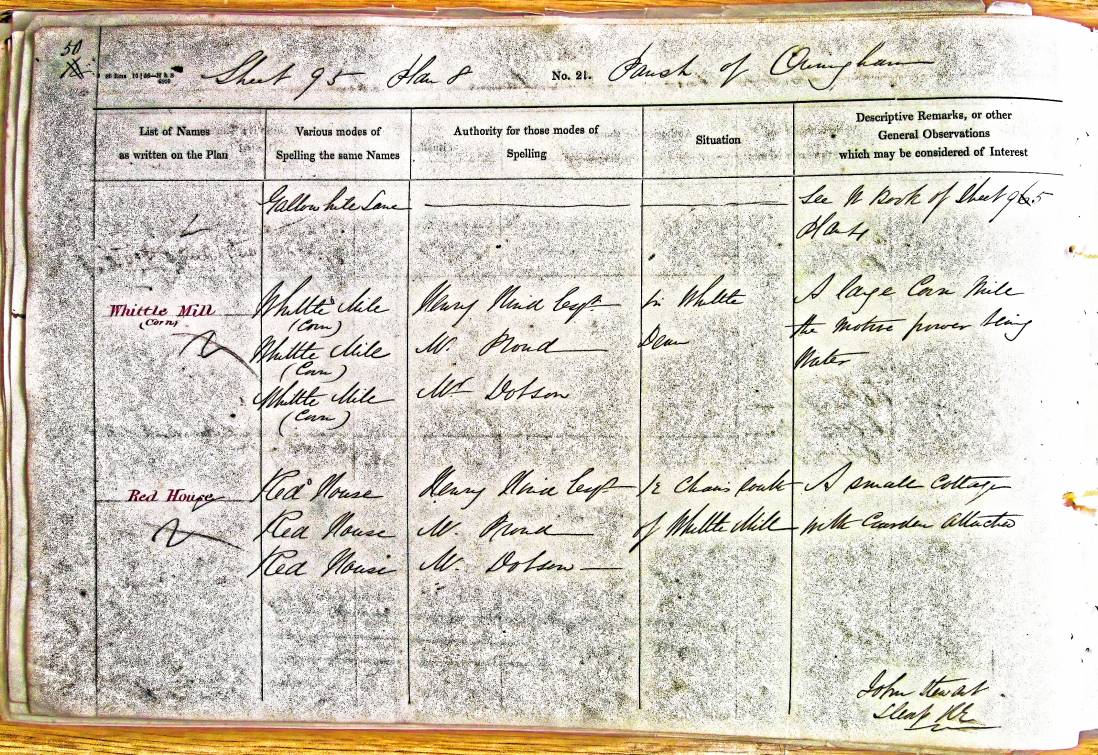 50
Sheet 95 Plan 8 No. 21. Parish of Ovingham
List of Names as written on the Plan
Various modes of Spelling the same Names
Authority for those modes of Spelling
Situation
Descriptive Remarks, or other General Observations which may be considered of Interest
Gallowhill Lane
See N Book of Sheet 95
Plan 4
Whittle Mill
(Corn)
Whittle Mill
(Corn)
Whittle Mill
(Corn)
Whittle Mill
(Corn)
Henry Hind Esqr
Mr. Proud
Mr Dobson
In Whittle
Dean
A large Corn Mill
the motive power being
Water
Red House
Red House
Red House
Red House
Henry Hind Esqr
Mr. Proud
Mr. Dobson
Chains South
of Whittle Mill
A small cottage
with Garden attached
John Stewart
RE